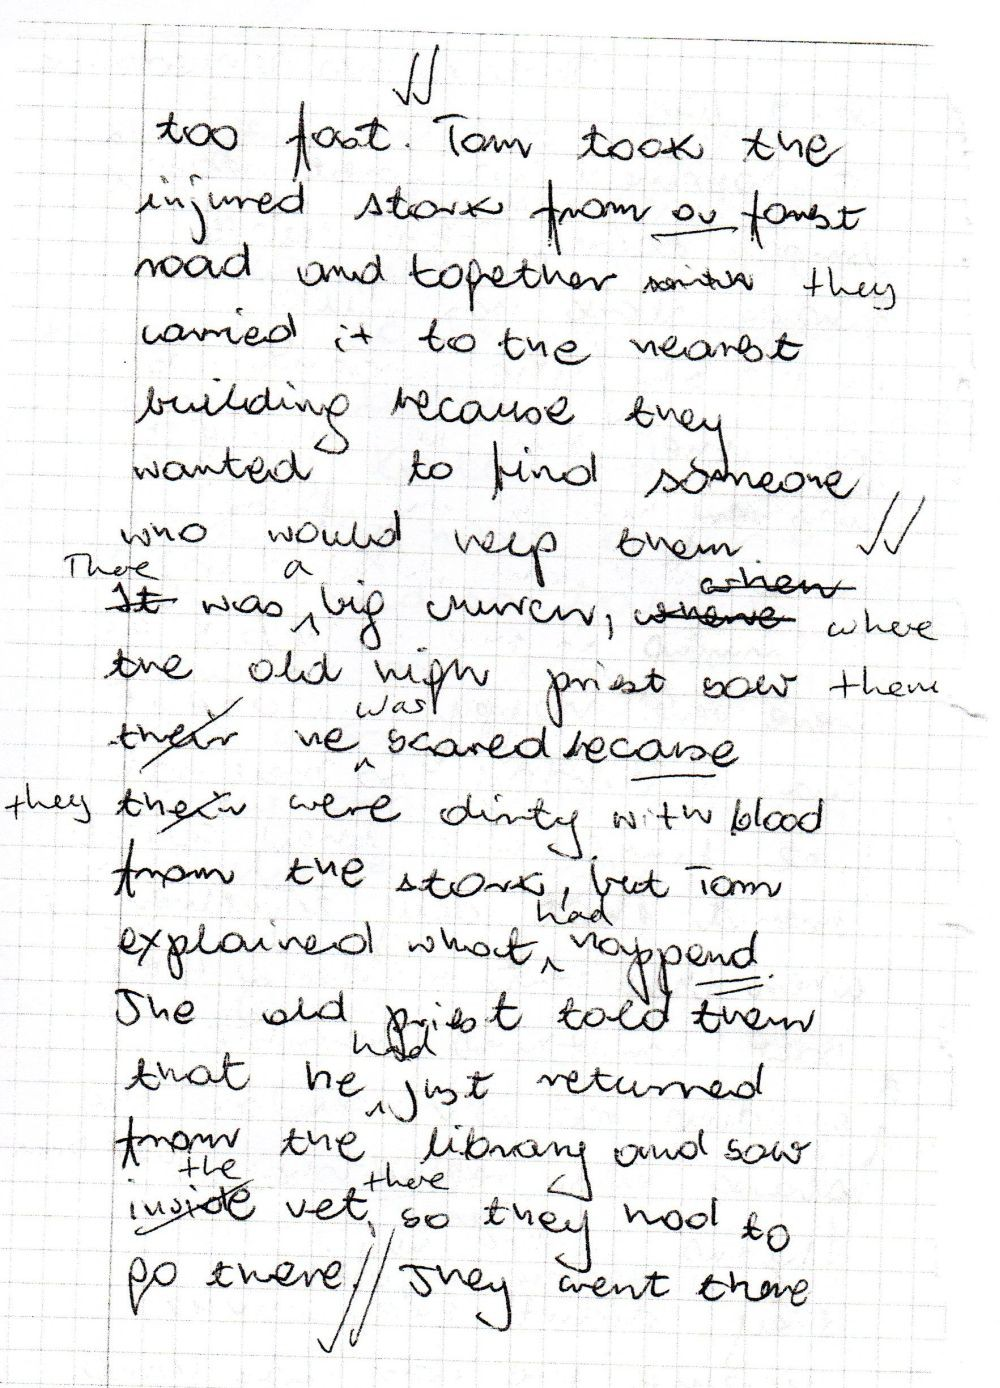 too fast. Tom took the
injured stork from a forest
road and together they
carried it to the nearest
building because they
wanted to find someone
who would help them.
There a when
It was big church, where where
the old high priest saw them
was
their he scared becaise
they their were dirty with blood
from the stork, but Tom
had
explained what happend.
The old priest told them
had
that he just returned
from the library and saw
the there
inside vet, so they had to
go there. They went there